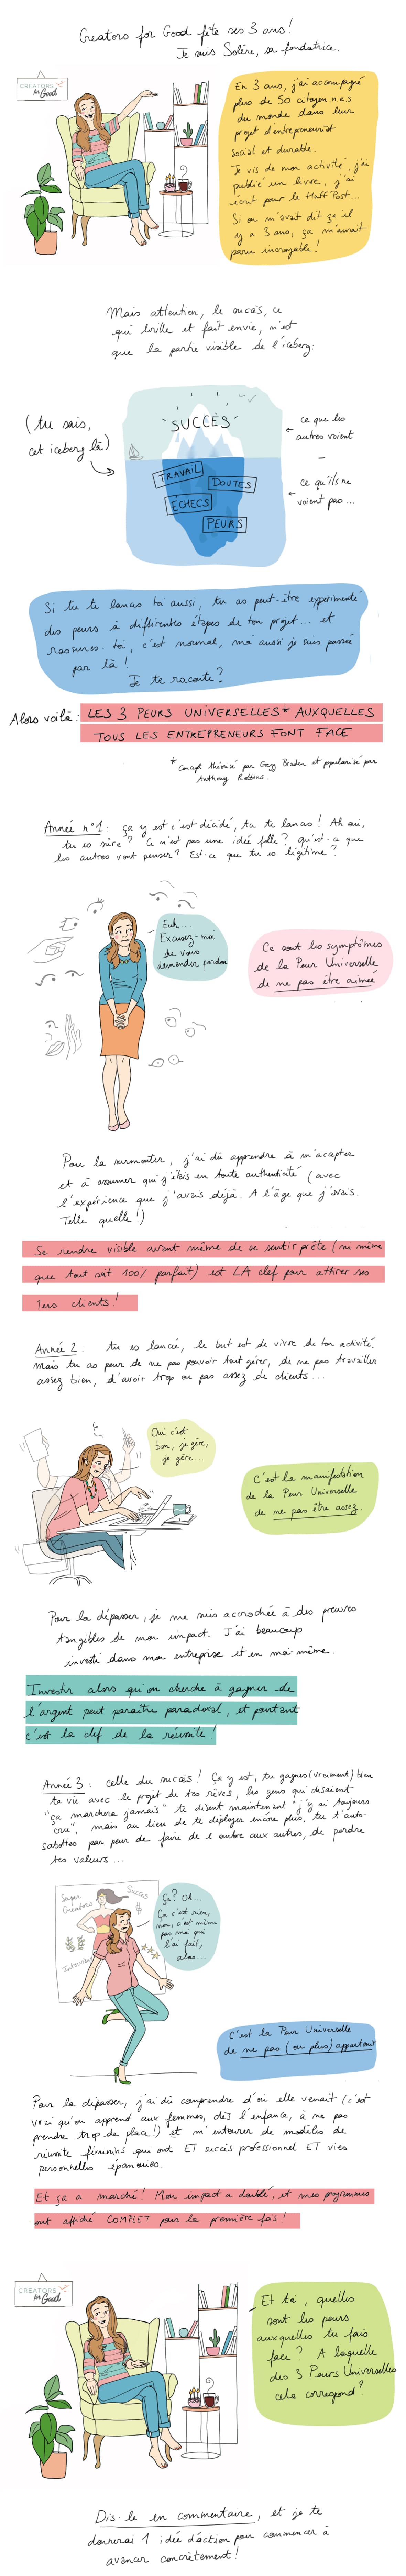 Creators for Good fête ses 3 ans!
Je suis Solène, sa fondatrice.
CREATORS
for Good
En 3 ans, j'ai accompagné
plus de 50 citoyen.n.e.s
du monde dans leur
projet d'entrepreneuriat
social et durable.
Je vis de mon activité, j'ai
publié un livre, j'ai
écrit pour le Huff Post...
Si on m'avait dit ça il
y a 3 ans, ça m'aurait
paru incroyable!
Mais attention, le succès, ce
qui brille et fait envie, n'est
que la partie visible de l'iceberg:
(tu sais,
cet iceberg là)
SUCCÈS
TRAVAIL
DOUTES
ÉCHECS
PEURS
ce que les
autres voient
-
ce qu'ils ne
voient pas...
Si tu te lances toi aussi, tu as peut-être expérimenté
des peurs à différentes étapes de ton projet... et
rassures-toi, c'est normal, moi aussi je suis passée
par là!
Je te raconte?
Alors voilà: LES 3 PEURS UNIVERSELLES* AUXQUELLES
TOUS LES ENTREPRENEURS FONT FACE
* Concept théorisé par Gregg Braden et popularisé par
Anthony Robbins.
Année n°1: ça y est c'est décidé, tu te lances! Ah oui,
tu es sûre? Ce n'est pas une idée folle? qu'est-ce que
les autres vont penser? Est-ce que tu es légitime?
Euh...
Excusez-moi
de vous
demander pardon
Ce sont les symptômes
de la Peur Universelle
de ne pas être aimée
Pour la surmonter, j'ai dû apprendre à m'accepter
et à assumer qui j'étais en toute authenticité (avec
l'expérience que j'avais déjà. A l'âge que j'avais.
Telle quelle!)
Se rendre visible avant même de se sentir prête (ni même
que tout soit 100% parfait) est LA clef pour attirer ses
1ers clients!
Année 2: tu es lancée, le but est de vivre de ton activité.
Mais tu as peur de ne pas pouvoir tout gérer, de ne pas travailler
assez bien, d'avoir trop ou pas assez de clients...
Oui, c'est
bon, je gère,
je gère...
C'est la manifestation
de la Peur Universelle
de ne pas être assez.
Pour la dépasser, je me suis accrochée à des preuves
tangibles de mon impact. J'ai beaucoup
investi dans mon entreprise et en moi-même.
Investir alors qu'on cherche à gagner de
l'argent peut paraître paradoxal, et pourtant
c'est la clef de la réussite!
Année 3: celle du succès! Ça y est, tu gagnes (vraiment) bien
ta vie avec le projet de tes rêves, les gens qui disaient
"ça marchera jamais" te disent maintenant "j'y ai toujours
cru", mais au lieu de te déployer encore plus, tu t'auto-
sabottes par peur de faire de l'ombre aux autres, de perdre
tes valeurs...
Super
Creators
Succès
Interview
Ça? Oh...
Ça c'est rien,
non, c'est même
pas moi qui
l'ai fait,
alors...
C'est la Peur Universelle
de ne pas (ou plus) appartenir
Pour la dépasser, j'ai dû comprendre d'où elle venait (c'est
vrai qu'on apprend aux femmes, dès l'enfance, à ne pas
prendre trop de place!) et m'entourer de modèles de
réussite féminins qui ont ET succès professionnel ET vies
personnelles épanouies.
Et ça a marché! Mon impact a doublé, et mes programmes
ont affiché COMPLET pour la première fois!
CREATORS
for Good
Et toi, quelles
sont les peurs
auxquelles tu fais
face? A laquelle
des 3 Peurs Universelles
cela correspond?
Dis-le en commentaire, et je te
donnerai 1 idée d'action pour commencer à
avancer concrètement!